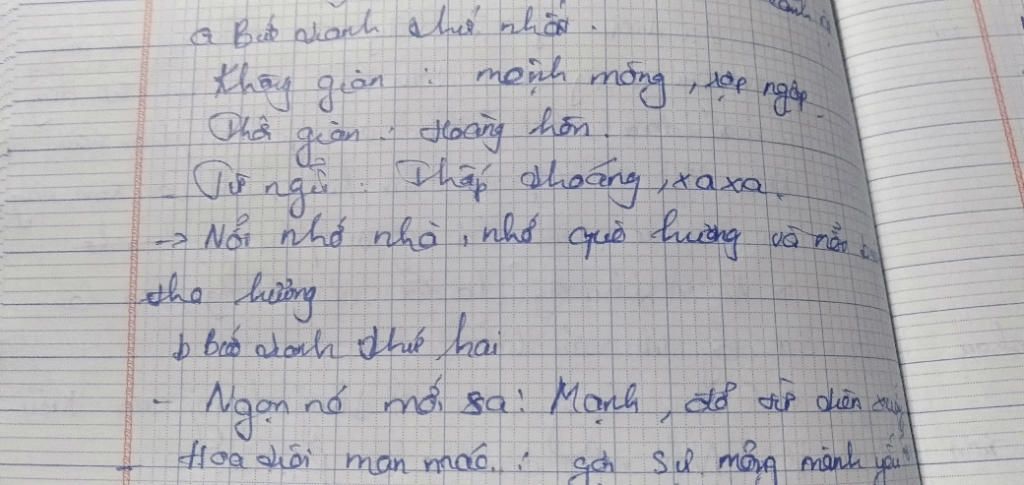 a Bức tranh thứ nhất.
Không gian : mênh mông, rợp ngợp.
Thời gian : Hoàng hôn.
- Từ ngữ : Thấp thoáng, xa xa.
→ Nỗi nhớ nhà, nhớ quê hương và nỗi
tha hương
b Bức tranh thứ hai
- Ngọn nước mới sa : Mạnh, đổ từ trên
+ Hoa trôi man mác : gợi sự mỏng mảnh yếu